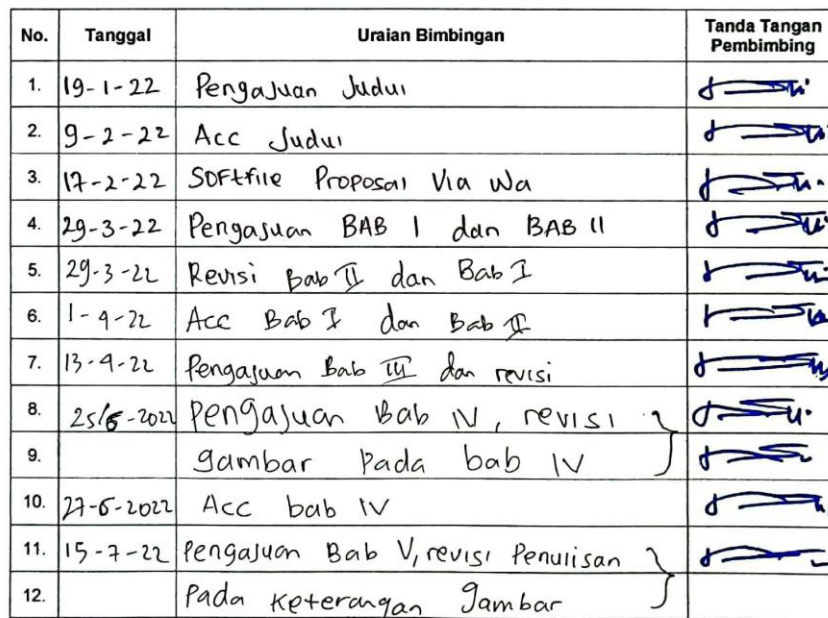 No. Tanggal Uraian Bimbingan Tanda Tangan Pembimbing
1. 19-1-22 Pengajuan Judul
2. 9-2-22 Acc Judul
3. 17-2-22 Softfile Proposal Via Wa
4. 29-3-22 Pengajuan BAB I dan BAB II
5. 29-3-22 Revisi Bab II dan Bab I
6. 1-4-22 Acc Bab I dan Bab II
7. 13-4-22 Pengajuan Bab III dan revisi
8. 25/6-2022 Pengajuan Bab IV, revisi
9. gambar Pada bab IV
10. 27-6-2022 Acc bab IV
11. 15-7-22 Pengajuan Bab V, revisi Penulisan
12. Pada Keterangan Gambar